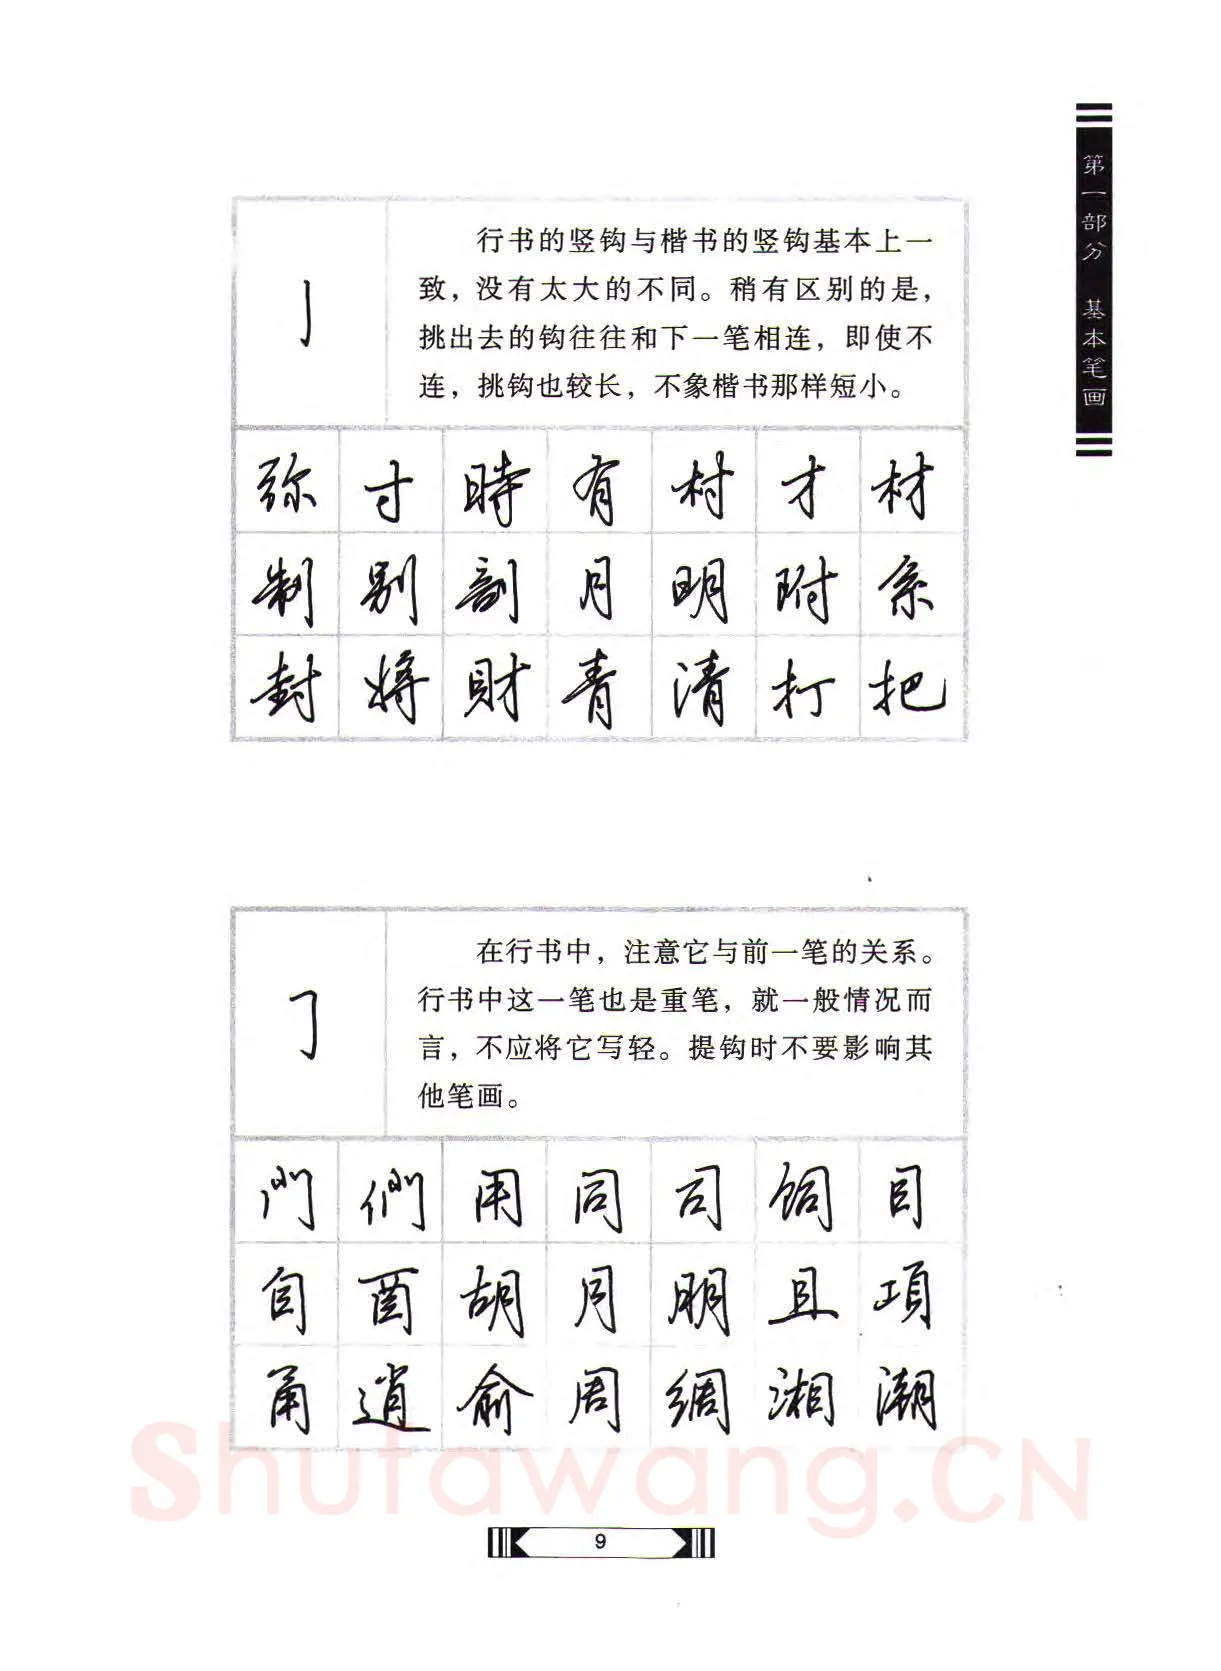 第一部分 基本笔画
亅
行书的竖钩与楷书的竖钩基本上一
致，没有太大的不同。稍有区别的是，
挑出去的钩往往和下一笔相连，即使不
连，挑钩也较长，不象楷书那样短小。
弥 寸 時 有 村 才 材
制 别 剖 月 明 附 系
封 將 財 青 清 打 把
𠃌
在行书中，注意它与前一笔的关系。
行书中这一笔也是重笔，就一般情况而
言，不应将它写轻。提钩时不要影响其
他笔画。
門 們 用 同 司 饲 目
自 酉 胡 月 明 且 項
甬 逍 俞 周 绸 湘 潮
Shufawang.CN
9